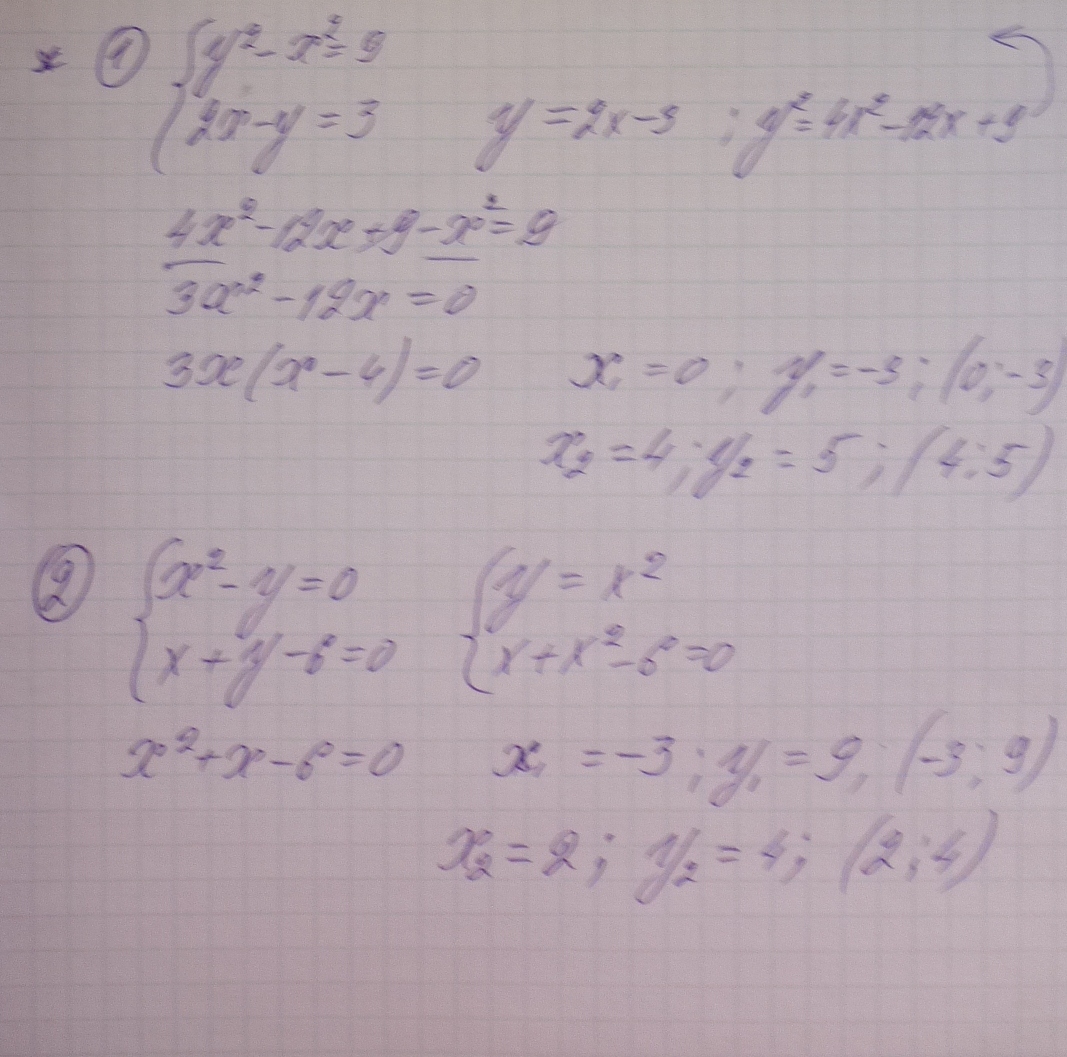 * ① { y² - x² = 9
2x - y = 3 y = 2x - 3 ; y² = 4x² - 12x + 9
4x² - 12x + 9 - x² = 9
3x² - 12x = 0
3x(x - 4) = 0 x₁ = 0 ; y₁ = -3 ; (0; -3)
x₂ = 4 ; y₂ = 5 ; (4; 5)
② { x² - y = 0 { y = x²
x + y - 6 = 0 x + x² - 6 = 0
x² + x - 6 = 0 x₁ = -3 ; y₁ = 9 ; (-3; 9)
x₂ = 2 ; y₂ = 4 ; (2; 4)